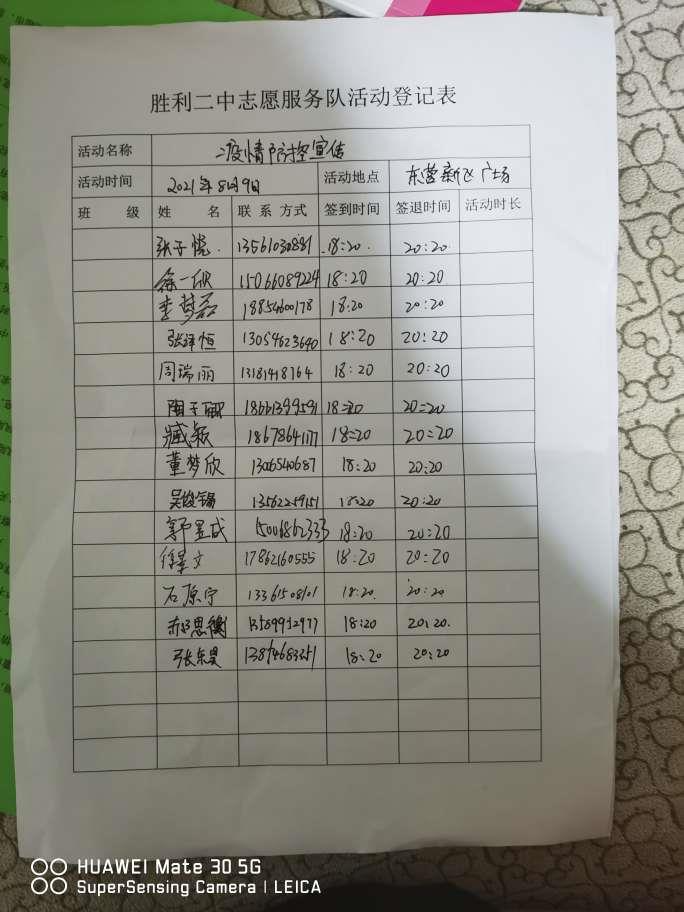 胜利二中志愿服务队活动登记表
活动名称 疫情防控宣传
活动时间 2021年8月9日 活动地点 东营新区广场
班 级 姓 名 联 系 方式 签到时间 签退时间 活动时长
张子悦 13561030881 18:20 20:20
徐一欣 15066089224 18:20 20:20
李梦磊 18854600178 18:20 20:20
张译恒 13054623640 18:20 20:20
周瑞丽 13181418764 18:20 20:20
18661399591 18=20 20=20
臧颖 18678641177 18=20 20=20
董梦欣 1306540687 18:20 20:20
13562259151 18:20 20:20
舒昱成 15001862333 18:20 20:20
徐景文 17862160555 18:20 20:20
石原宁 13361508101 18:20 20:20
郝思衡 13589912977 18:20 20:20
张东昊 18:20 20:20
HUAWEI Mate 30 5G
SuperSensing Camera | LEICA